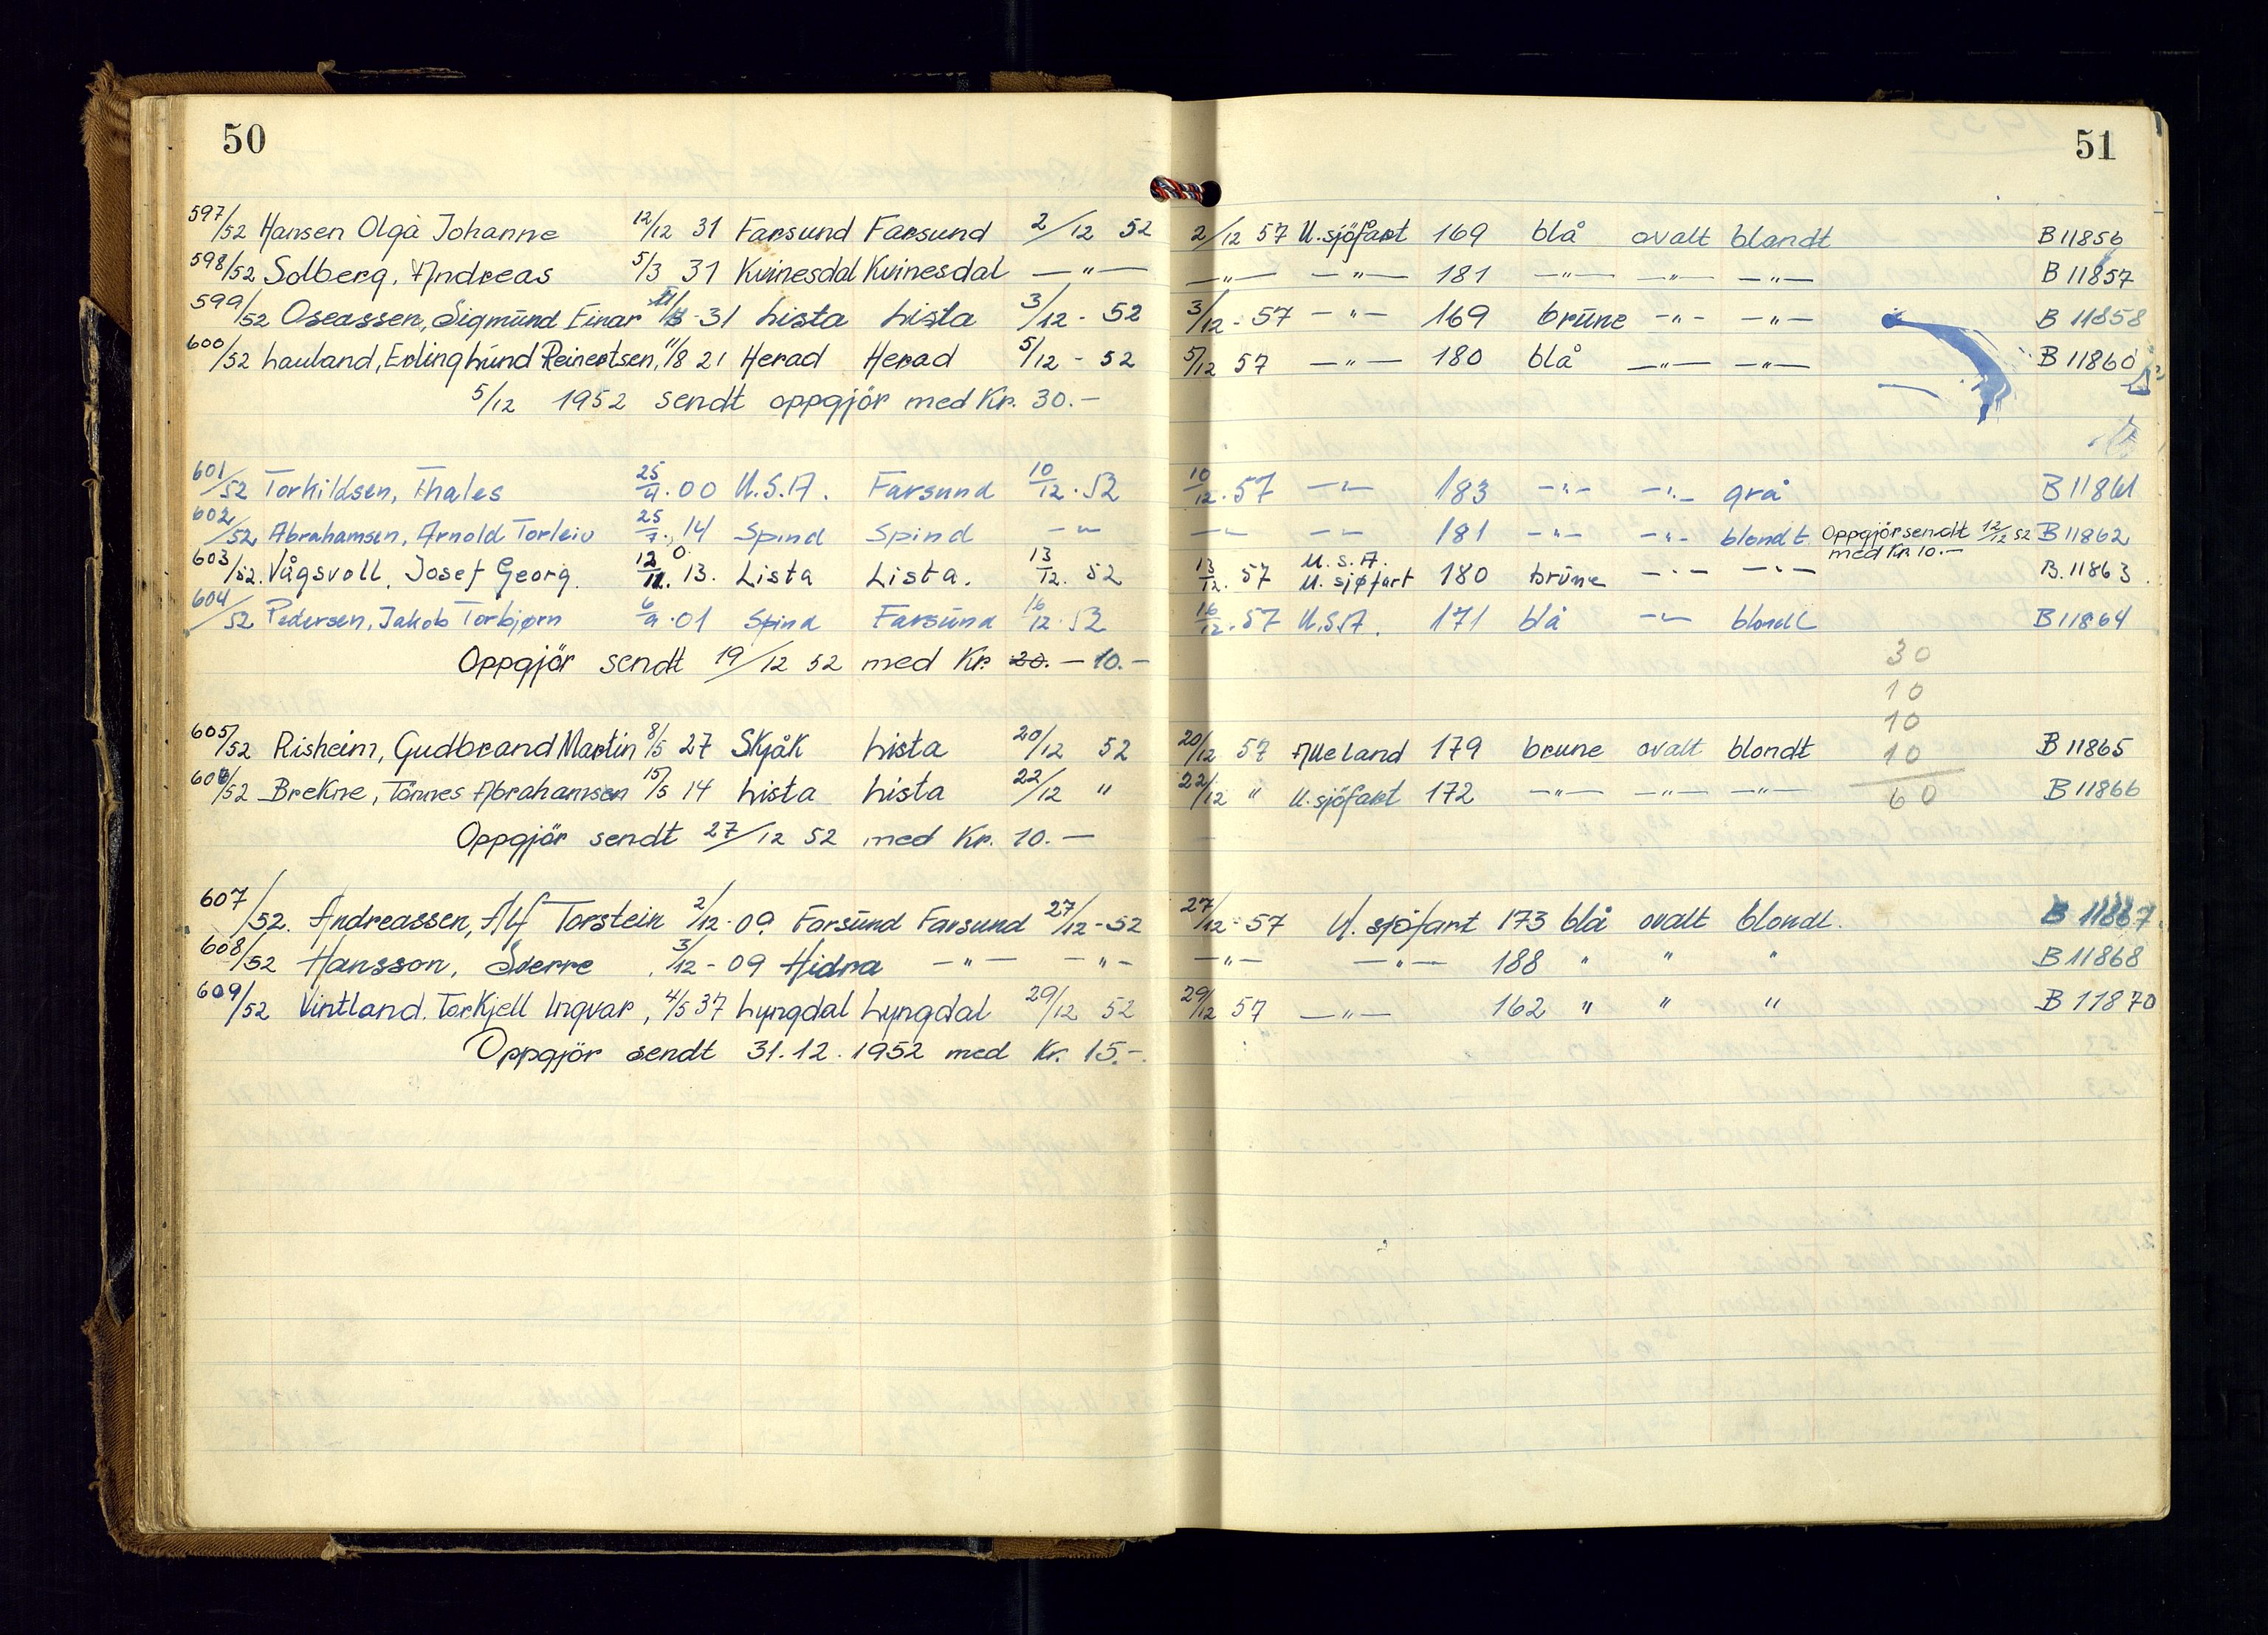 50
51
597/52 Hansen Olga Johanne 12/12 31 Farsund Farsund 2/12 52 2/12 57 U.sjöfart 169 blå ovalt blandt B 11856
598/52 Solberg, Andreas 5/3 31 Kvinesdal Kvinesdal —"— —"— —"— 181 —"— —"— —"— B 11857
599/52 Oseassen, Sigmund Einar - 31 Lista Lista 3/12 - 52 3/12 - 57 —"— 169 brune —"— —"— B 11858
600/52 Lauland, Erling Lund Reinertsen, 11/8 21 Herad Herad 5/12 - 52 5/12 57 —"— 180 blå —"— —"— B 11860
5/12 1952 sendt oppgjör med Kr. 30.—
601/52 Torkildsen, Thales 25/9.00 U.S.A. Farsund 10/12.52 10/12.57 —"— 183 —"— —"— grå B 11861
602/52 Abrahamsen, Arnold Torleiv 25/7. 14 Spind Spind —"— —"— —"— 181 —"— —"— blondt Oppgjör sendt 12/12 52 B 11862
med Kr. 10.—
603/52. Vågsvoll, Josef Georg. 12/11. 13. Lista Lista. 13/12. 52 13/12. 57 U.S.A. U. sjøfart 180 brune —"— —"— B. 11863.
604/52 Pedersen, Jakob Torbjørn 6/9.01 Spind Farsund 16/12.52 16/12.57 U.S.A. 171 blå —"— blondt B 11864
Oppgjör sendt 19/12 52 med Kr. 20.— 10.—
30
10
10
605/52 Risheim, Gudbrand Martin 8/5 27 Skjåk Lista 20/12 52 20/12 57 Alle land 179 brune ovalt blondt 10 B 11865
606/52 Brekne, Tönnes Abrahamsen 15/5 14 Lista Lista 22/12 " 22/12 " U.sjöfart 172 —"— —"— —"— 60 B 11866
Oppgjör sendt 27/12 52 med Kr. 10.—
607/52. Andreassen, Alf Torstein 2/12-09. Farsund Farsund 27/12-52 27/12-57 U. sjöfart 173 blå ovalt blondt. B 11867.
608/52 Hansson, Sverre, 3/12-09 Hidra —"— —"— —"— —"— 188 " " " B 11868
609/52 Vintland. Torkjell Ingvar, 4/5 37 Lyngdal Lyngdal 29/12 52 29/12 57 —"— 162 " " " B 11870
Oppgjör sendt 31.12.1952 med Kr. 15.—